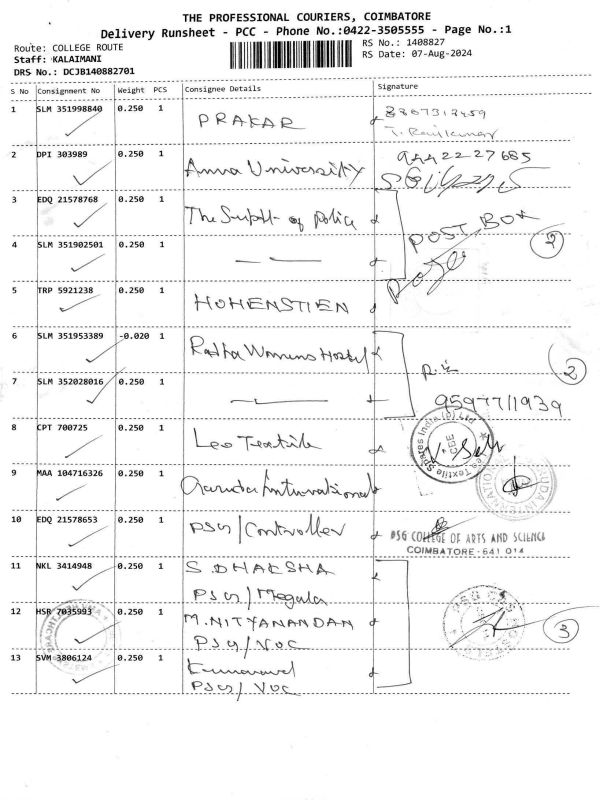 THE PROFESSIONAL COURIERS, COIMBATORE
Delivery Runsheet - PCC - Phone No.:0422-3505555 - Page No.:1
Route: COLLEGE ROUTE
RS No.: 1408827
Staff: KALAIMANI
RS Date: 07-Aug-2024
DRS No.: DCJB140882701
S No Consignment No Weight PCS Consignee Details Signature
1 SLM 351998840 0.250 1 PRAKAR
T. Rajkumar
2 DPI 303989 0.250 1 Anna University 9442227685
3 EDQ 21578768 0.250 1 The Supdt of police POST BOX
2
4 SLM 351902501 0.250 1 — —
5 TRP 5921238 0.250 1 HOHENSTIEN
6 SLM 351953389 -0.020 1 Radha Womens Hostel
2
7 SLM 352028016 0.250 1 — 9597711939
8 CPT 700725 0.250 1 Leo Textile
Leo Textile Spares India (P) Ltd
CBE
9 MAA 104716326 0.250 1 Garuda International
10 EDQ 21578653 0.250 1 PSG/Controller
PSG COLLEGE OF ARTS AND SCIENCE
COIMBATORE-641 014
11 NKL 3414948 0.250 1 S. DHAKSHA
PSG/Megala
12 HSR 7035993 0.250 1 M. NITYANANDAN
PSG/VOC
3
13 SVM 3806124 0.250 1 Kumaravel
PSG/VOC